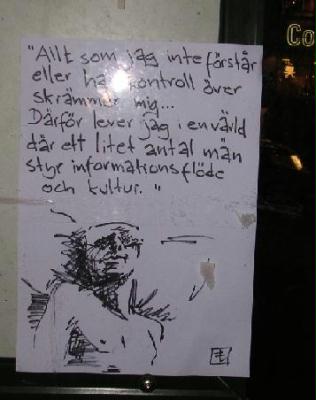 "Allt som jag inte förstår
eller har kontroll över
skrämmer mig...
Därför lever jag i en värld
där ett litet antal män
styr informationsflöde
och kultur."
Co